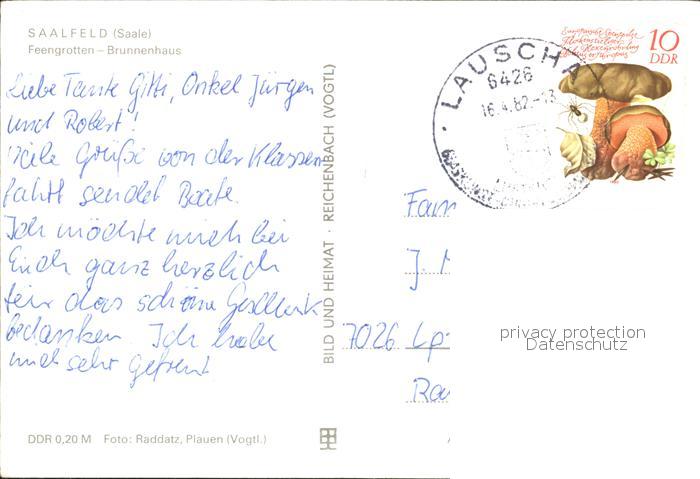 SAALFELD (Saale)
Feengrotten – Brunnenhaus
Liebe Tante Gitti, Onkel Jürgen
und Robert!
Viele Grüße von der Klassen
fahrt sendet Beate.
Ich möchte mich bei
Euch ganz herzlich
für das schöne Geschenk
bedanken. Ich habe
mich sehr gefreut
DDR 0,20 M Foto: Raddatz, Plauen (Vogtl.)
BILD UND HEIMAT · REICHENBACH (VOGTL)
LAUSCHA
6426
16.4.82-13
10
DDR
Fam
J.
7026 Lp
privacy protection
Datenschutz